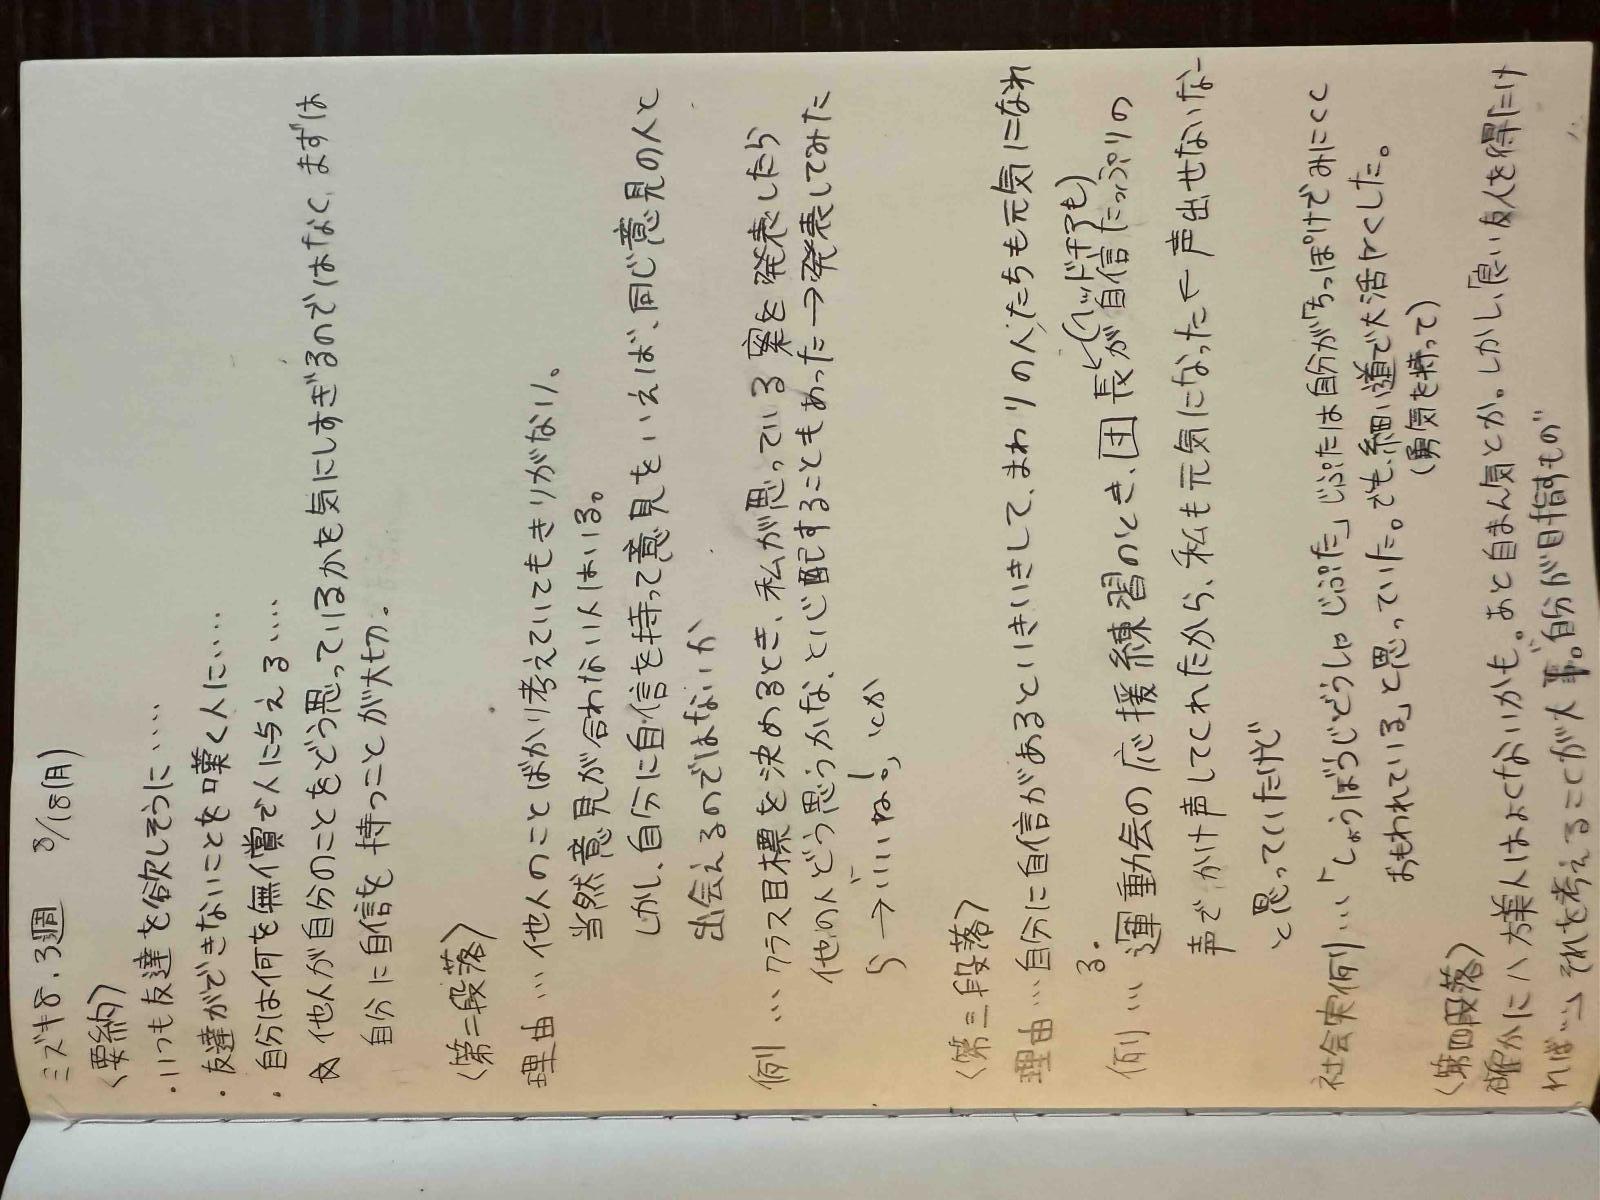 ミズキ8.3週 8/18(月)
〈要約〉
・いつも友達を欲しそうに……
・友達ができないことを嘆く人に……
・自分は何を無償で人に与える……
☆ 他人が自分のことをどう思っているかを気にしすぎるのではなく、まずは
自分に自信を持つことが大切。
〈第二段落〉
理由…他人のことばかり考えていてもきりがない。
当然意見が合わない人はいる。
しかし、自分に自信を持って意見をいえば、同じ意見の人と
出会えるのではないか
例 …クラス目標を決めるとき、私が思っている案を発表したら
他の人どう思うかな、と心配することもあった→発表してみた
ら→「いいね!」とか
〈第三段落〉
理由…自分に自信があるといきいきして、まわりの人たちも元気になれ
る。
(ヘッドギアも)
例…運動会の応援練習のとき、団長が自信たっぷりの
声でかけ声してくれたから、私も元気になった←声出せないなー
と思っていたけど
社会実例…「しょうぼうじどうしゃじぷた」じぷたは自分が「ちっぽけでみにくく
おもわれている」と思っていた。でも、細い道で大活やくした。
(勇気を持って)
〈第四段落〉
確かに八方美人はよくないかも。あと自まん気とか。しかし、「良い友人を得たけ
れば…」それを考えることが大事。自分が目指すもの